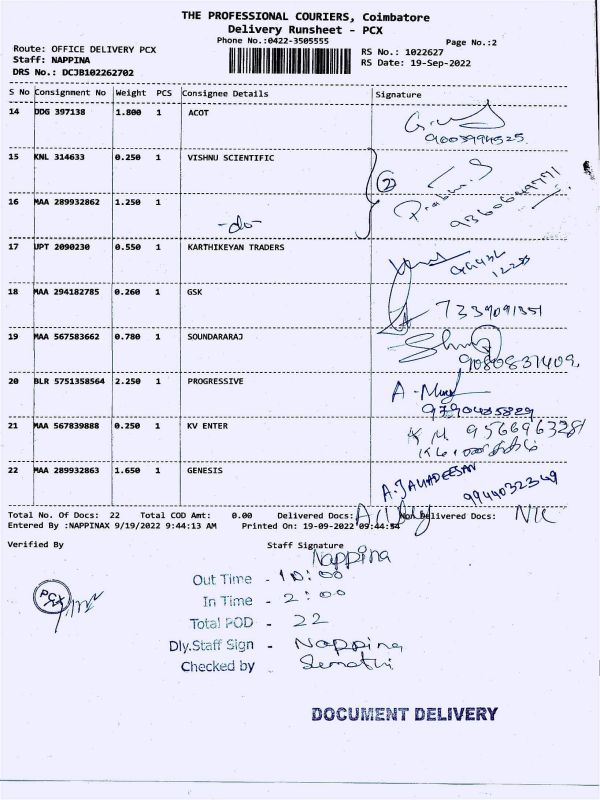 THE PROFESSIONAL COURIERS, Coimbatore
Delivery Runsheet - PCX
Phone No.:0422-3505555
Page No.:2
Route: OFFICE DELIVERY PCX
Staff: NAPPINA
RS No.: 1022627
DRS No.: DCJB102262702
RS Date: 19-Sep-2022
S No Consignment No Weight PCS Consignee Details Signature
14 DDG 397138 1.800 1 ACOT
9003994525
15 KNL 314633 0.250 1 VISHNU SCIENTIFIC
2
16 MAA 289932862 1.250 1 -do-
17 UPT 2090230 0.550 1 KARTHIKEYAN TRADERS
18 MAA 294182785 0.260 1 GSK
7339091351
19 MAA 567583662 0.780 1 SOUNDARARAJ
9080831409
20 BLR 5751358564 2.250 1 PROGRESSIVE
9790435829
21 MAA 567839888 0.250 1 KV ENTER K M 9566963281
22 MAA 289932863 1.650 1 GENESIS A.JAHADEESAN
9944032349
Total No. Of Docs: 22 Total COD Amt: 0.00 Delivered Docs: Non Delivered Docs: NIL
Entered By :NAPPINAX 9/19/2022 9:44:13 AM Printed On: 19-09-2022 09:44:54
Verified By Staff Signature
Nappina
Out Time - 10:00
In Time - 2:00
PCX
Total POD - 22
Dly.Staff Sign - Nappina
Checked by
DOCUMENT DELIVERY